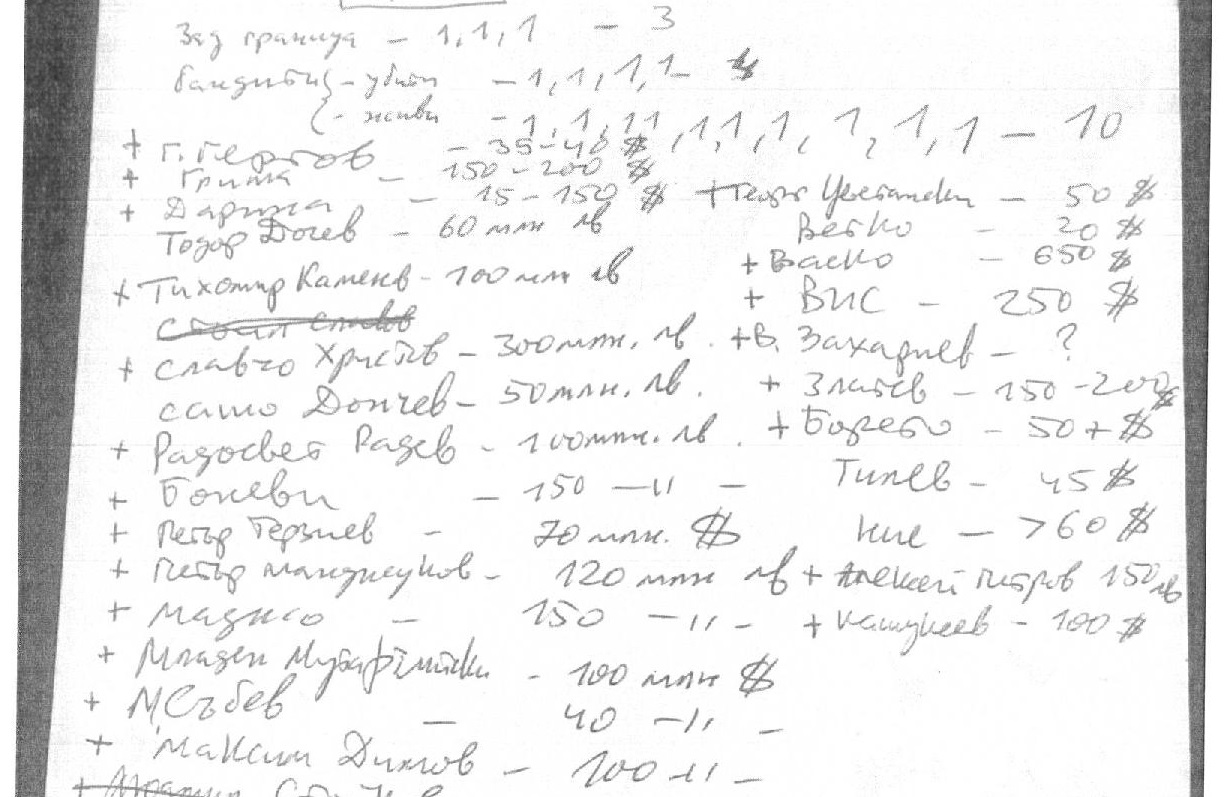 Зад граница – 1, 1, 1 – 3
бандити – убити – 1, 1, 1, 1 –
– живи – 1, 1, 1 1, 1 1, 1, 1, 1, 1 – 10
+ Г. Гергов – 35–40 $
+ Гриша – 150 – 200 $
+ Дарина – 15 – 150 $
Тодор Дочев – 60 млн лв
+ Тихомир Каменов – 100 млн лв
+ Славчо Христов – 300 млн. лв.
Сашо Дончев – 50 млн. лв.
+ Радосвет Радев – 100 млн. лв.
+ Боневи – 150 – 11 –
+ Петър Терзиев – 70 млн. $
+ Петър Манджуков – 120 млн лв
+ Маджо – 150 – 11 –
+ Младен Мутафчийски – 100 млн $
+ М Събев – 40 – 11 –
+ Максим Димов – 100 – 11 –
+ – 50 $
Ветко – 20 $
+ Васко – 650 $
+ ВИС – 250 $
+ В. Захариев – ?
+ Златев – 150 – 200 $
+ Борето – 50 + $
Тилев – 45 $
Ние – > 60 $
+ Алексей Петров 150 лв
+ – 100 $